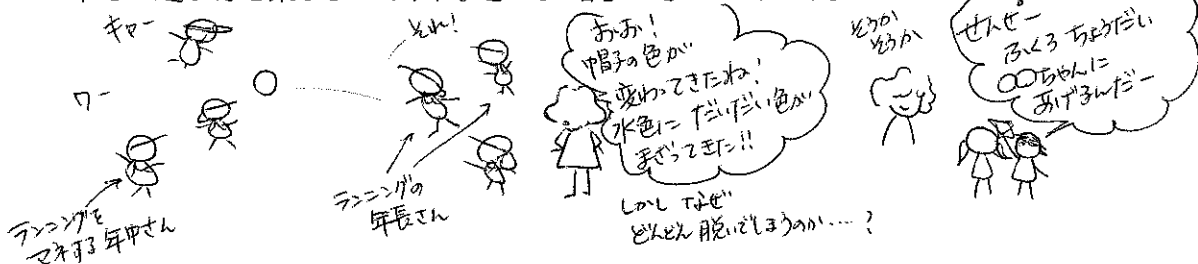 キャー
ワー
ランニングを
マネする年中さん
それ!
ランニングの
年長さん
おお!
帽子の色が
変わってきたね!
水色に だいだい色が
まざってきた!!
しかし なぜ
どんどん 脱いでしまうのか……?
そうか
そうか
せんせー
ふくろ ちょうだい
〇〇ちゃんに
あげるんだー